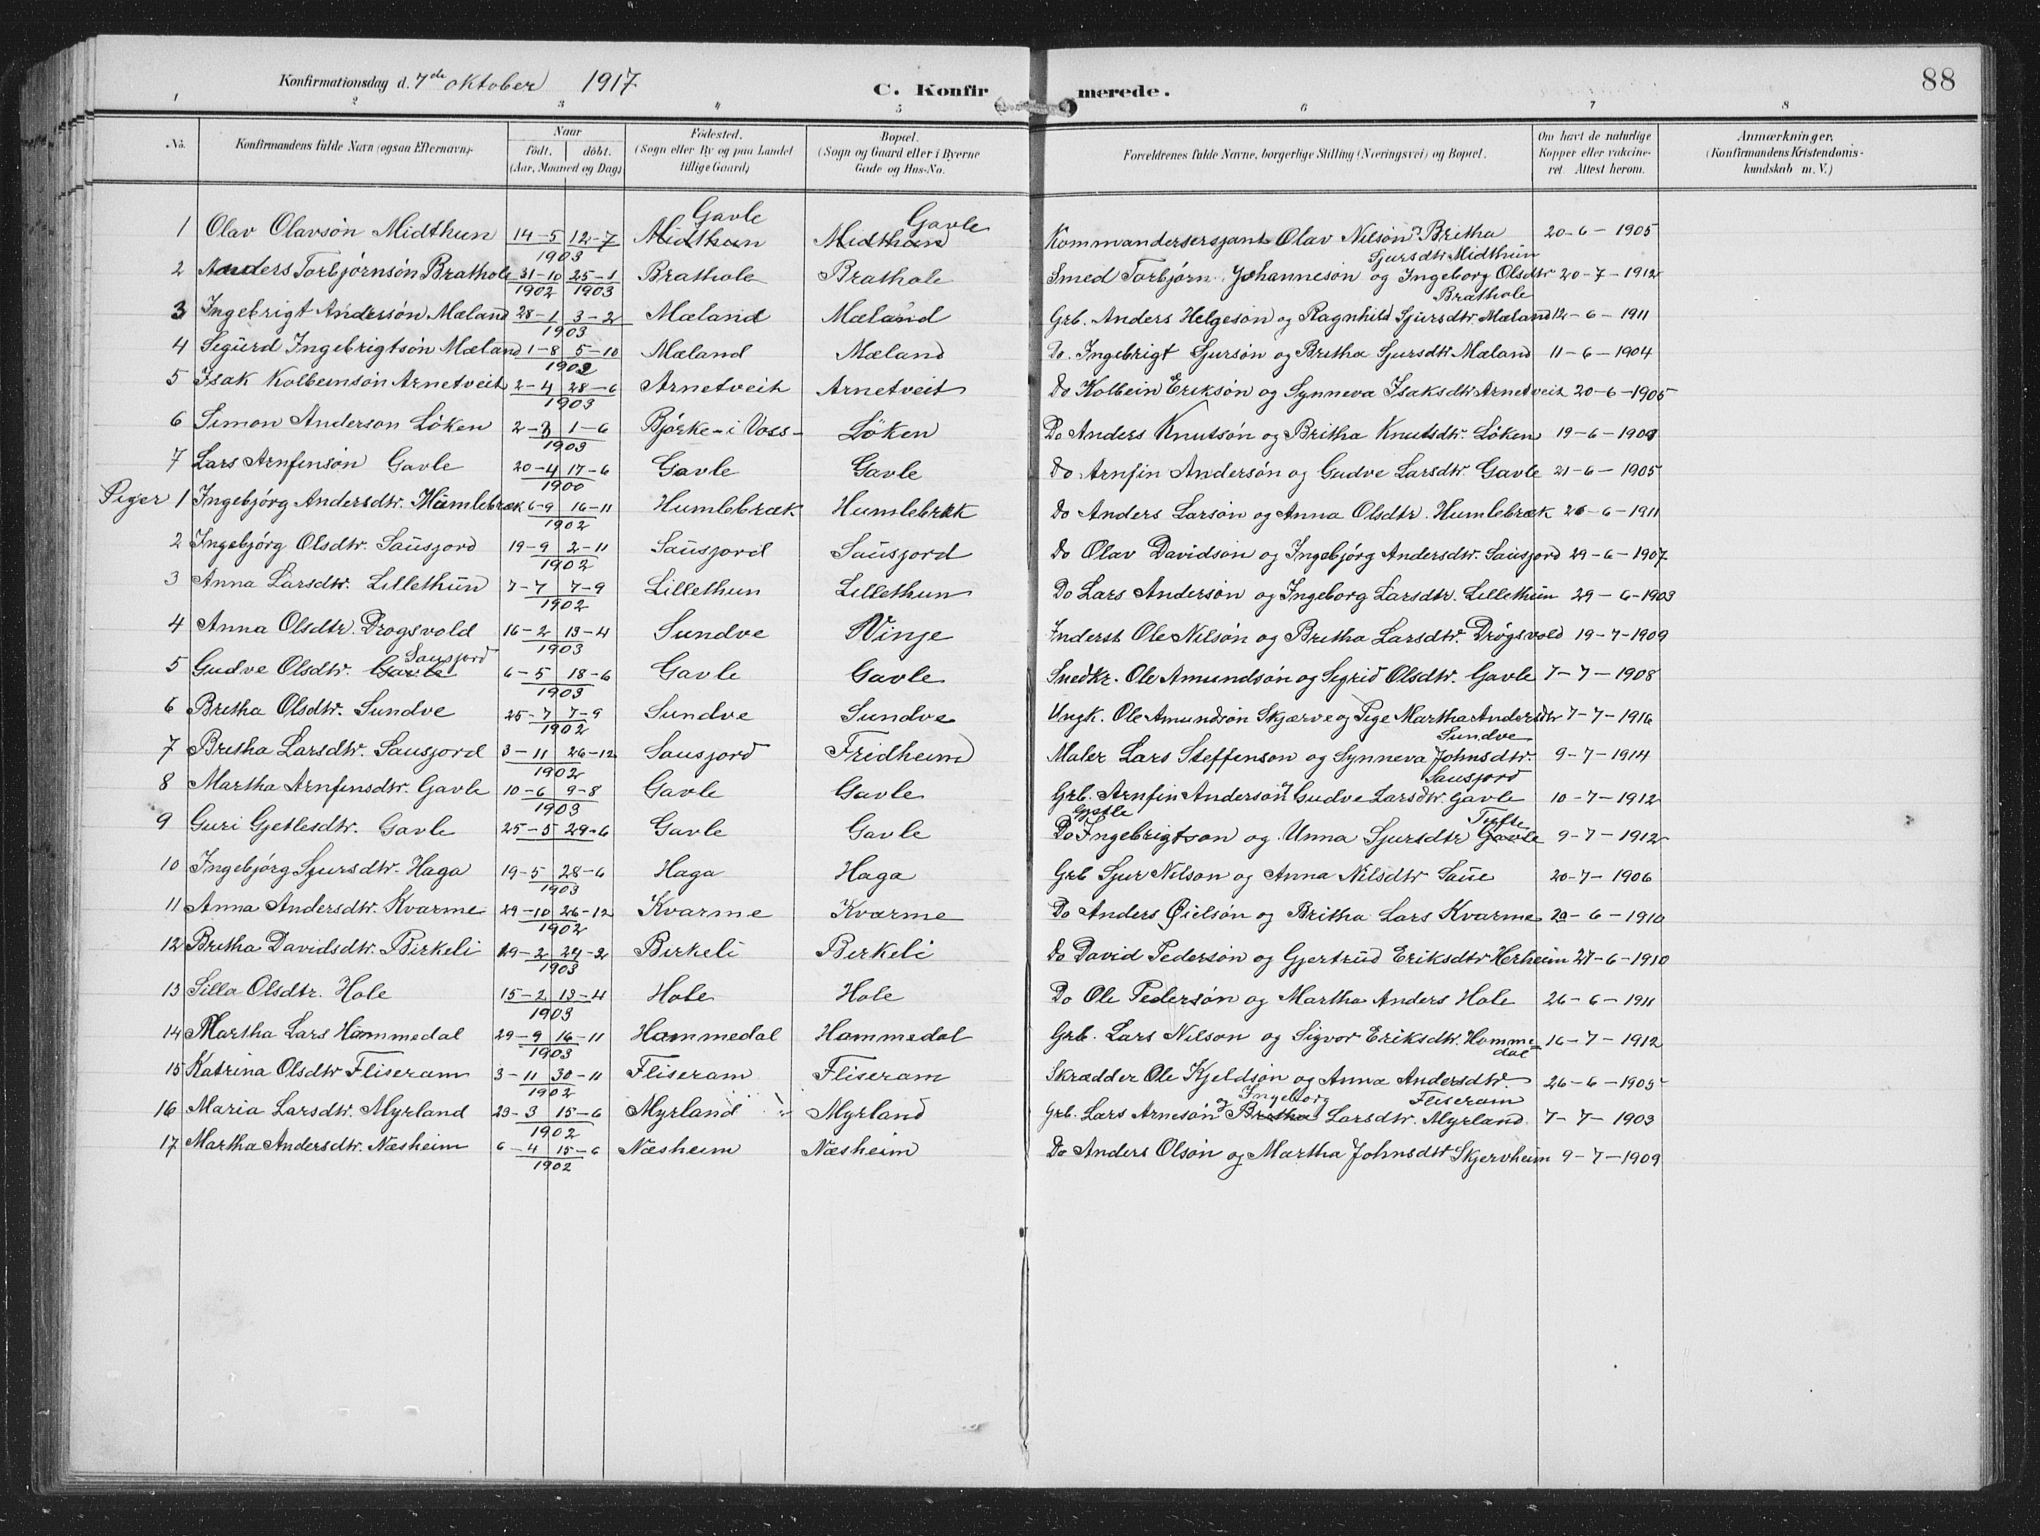 88
Konfirmationsdag d. 7de oktober 1917 C. Konfirmerede.
1 2 3 4 5 6 7 8
No. Konfirmandens fulde Navn (ogsaa Efternavn). Naar født. døbt. (Aar, Maaned og Dag) Fødested. (Sogn eller By og paa Landet tillige Gaard) Bopæl. (Sogn og Gaard eller i Byerne Gade og Hus-No. Forældrenes fulde Navne, borgerlige Stilling (Næringsvei) og Bopæl. Om havt de naturlige Kopper eller vakcineret. Attest herom. Anmærkninger, (Konfirmandens Kristendomskundskab m. V.)
1 Olav Olavsøn Midthun 14-5 12-7 1903 Midthun Gavle Midthun Gavle Kommandersersjant Olav Nilsøn Britha Sjursdtr Midthun 20-6-1905
2 Anders Torbjørnsøn Brathole 31-10 1902 25-1 1903 Brathole Brathole Smed Torbjørn Johannesøn og Ingeborg Olsdtr Brathole 20-7-1912
3 Ingebrigt Andersøn Mæland 28-1 3-2 1903 Mæland Mæland Grb. Anders Helgesøn og Ragnhild Sjursdtr. Mæland 12-6-1911
4 Sigurd Ingebrigtsøn Mæland 1-8 5-10 1902 Mæland Mæland Do. Ingebrigt Sjursøn og Britha Sjursdtr Mæland 11-6-1904
5 Isak Kolbeinsøn Arnetveit 2-4 28-6 1903 Arnetveit Arnetveit Do Kolbein Eriksøn og Synneva Isaksdtr Arnetveit 20-6-1905
6 Simon Anderson Løken 2-3 1-6 1903 Bjørke-i Voss- Løken Do Anders Knutsøn og Britha Knutsdtr. Løken 19-6-1909
7 Lars Arnfinsøn Gavle 20-4 17-6 1900 Gavle Gavle Do Arnfin Andersøn og Gudve Larsdtr Gavle 21-6-1905
Piger 1 Ingebjørg Andersdtr. Humlebræk 6-9 16-11 1902 Humlebræk Humlebræk Do Anders Larsøn og Anna Olsdtr. Humlebræk 26-6-1911
2 Ingebjørg Olsdtr. Sausjord 19-9 2-11 1902 Sausjord Sausjord Do Olav Davidsøn og Ingebjørg Andersdtr. Sausjord 29-6-1907
3 Anna Larsdtr. Lillethun 7-7 7-9 1902 Lillethun Lillethun Do Lars Andersøn og Ingeborg Larsdtr. Lillethun 29-6-1903
4 Anna Olsdtr. Drogsvold 16-2 13-4 1903 Sundve Vinje Inderst Ole Nilsøn og Britha Larsdtr. Drøgsvold 19-7-1909
5 Gudve Olsdtr. Gavle Sausjord 6-5 18-6 1903 Gavle Gavle Snedkr. Ole Amundsøn og Sigrid Olsdtr. Gavle 7-7-1908
6 Britha Olsdtr. Sundve 25-7 7-9 1902 Sundve Sundve Ungk. Ole Amundsøn Skjærve og Pige Martha Andersdtr Sundve 7-7-1916
7 Britha Larsdtr. Sausjord 3-11 26-12 1902 Sausjord Fridheim Maler Lars Steffenson og Synneva Johnsdtr. Sausjord 9-7-1914
8 Martha Arnfinsdtr. Gavle 10-6 9-8 1903 Gavle Gavle Grb. Arnfin Anderson og Gudve Larsdtr. Gavle 10-7-1912
9 Guri Gjetlesdtr. Gavle 25-5 29-6 Gavle Gavle Do Gjetle Ingebrigtson og Unna Sjursdtr Gavle Tufte 9-7-1912
10 Ingebjørg Sjursdtr. Haga 19-5 28-6 1903 Haga Haga Grb Sjur Nilson og Anna Nilsdtr Saue 20-7-1906
11 Anna Andersdtr. Kvarme 29-10 26-12 1902 Kvarme Kvarme Do Anders Øielsøn og Britha Lars Kvarme 20-6-1910
12 Britha Davidsdtr. Birkeli 29-2 24-2 1903 Birkeli Birkeli Do David Pedersøn og Gjertrud Eriksdtr Herheim 27-6-1910
13 Silla Olsdtr. Hole 15-2 13-4 1903 Hole Hole Do Ole Pedersøn og Martha Anders Hole 26-6-1911
14 Martha Lars Hommedal 29-9 16-11 1903 Hommedal Hommedal Grb. Lars Nilson og Sigvor Eriksdtr. Hommedal 16-7-1912
15 Katrina Olsdtr Fliseram 3-11 30-11 1902 Fliseram Fliseram Skrædder Ole Kjeldsøn og Anna Andersdtr. Fliseram 26-6-1905
16 Maria Larsdtr. Myrland 23-3 15-6 1902 Myrland Myrland Grb. Lars Arnesøn og Ingeborg Britha Larsdtr. Myrland. 7-7-1903
17 Martha Andersdtr. Næsheim 6-4 15-6 1902 Næsheim Næsheim Do Anders Olsøn og Martha Johnsdtr Skjervheim 9-7-1909